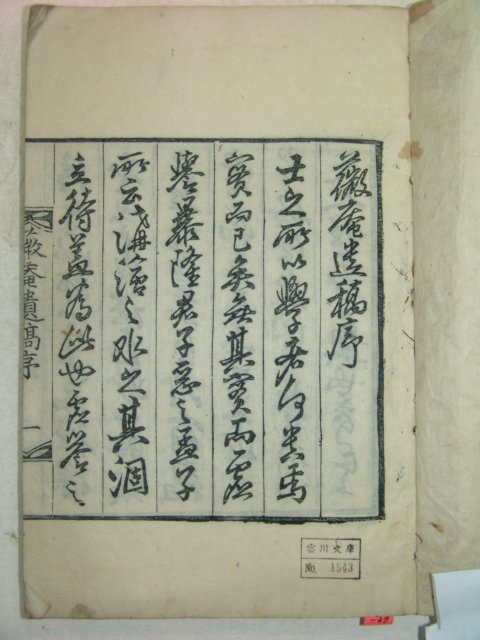 薇庵遺稿序
士之所以貴焉
實而已矣無其實而虛
譽暴隆君子惡之孟子
所云溝澮之水其涸
立待蓋爲此也虛譽之
薇庵遺稿序 一
雲川文庫
No. 1543